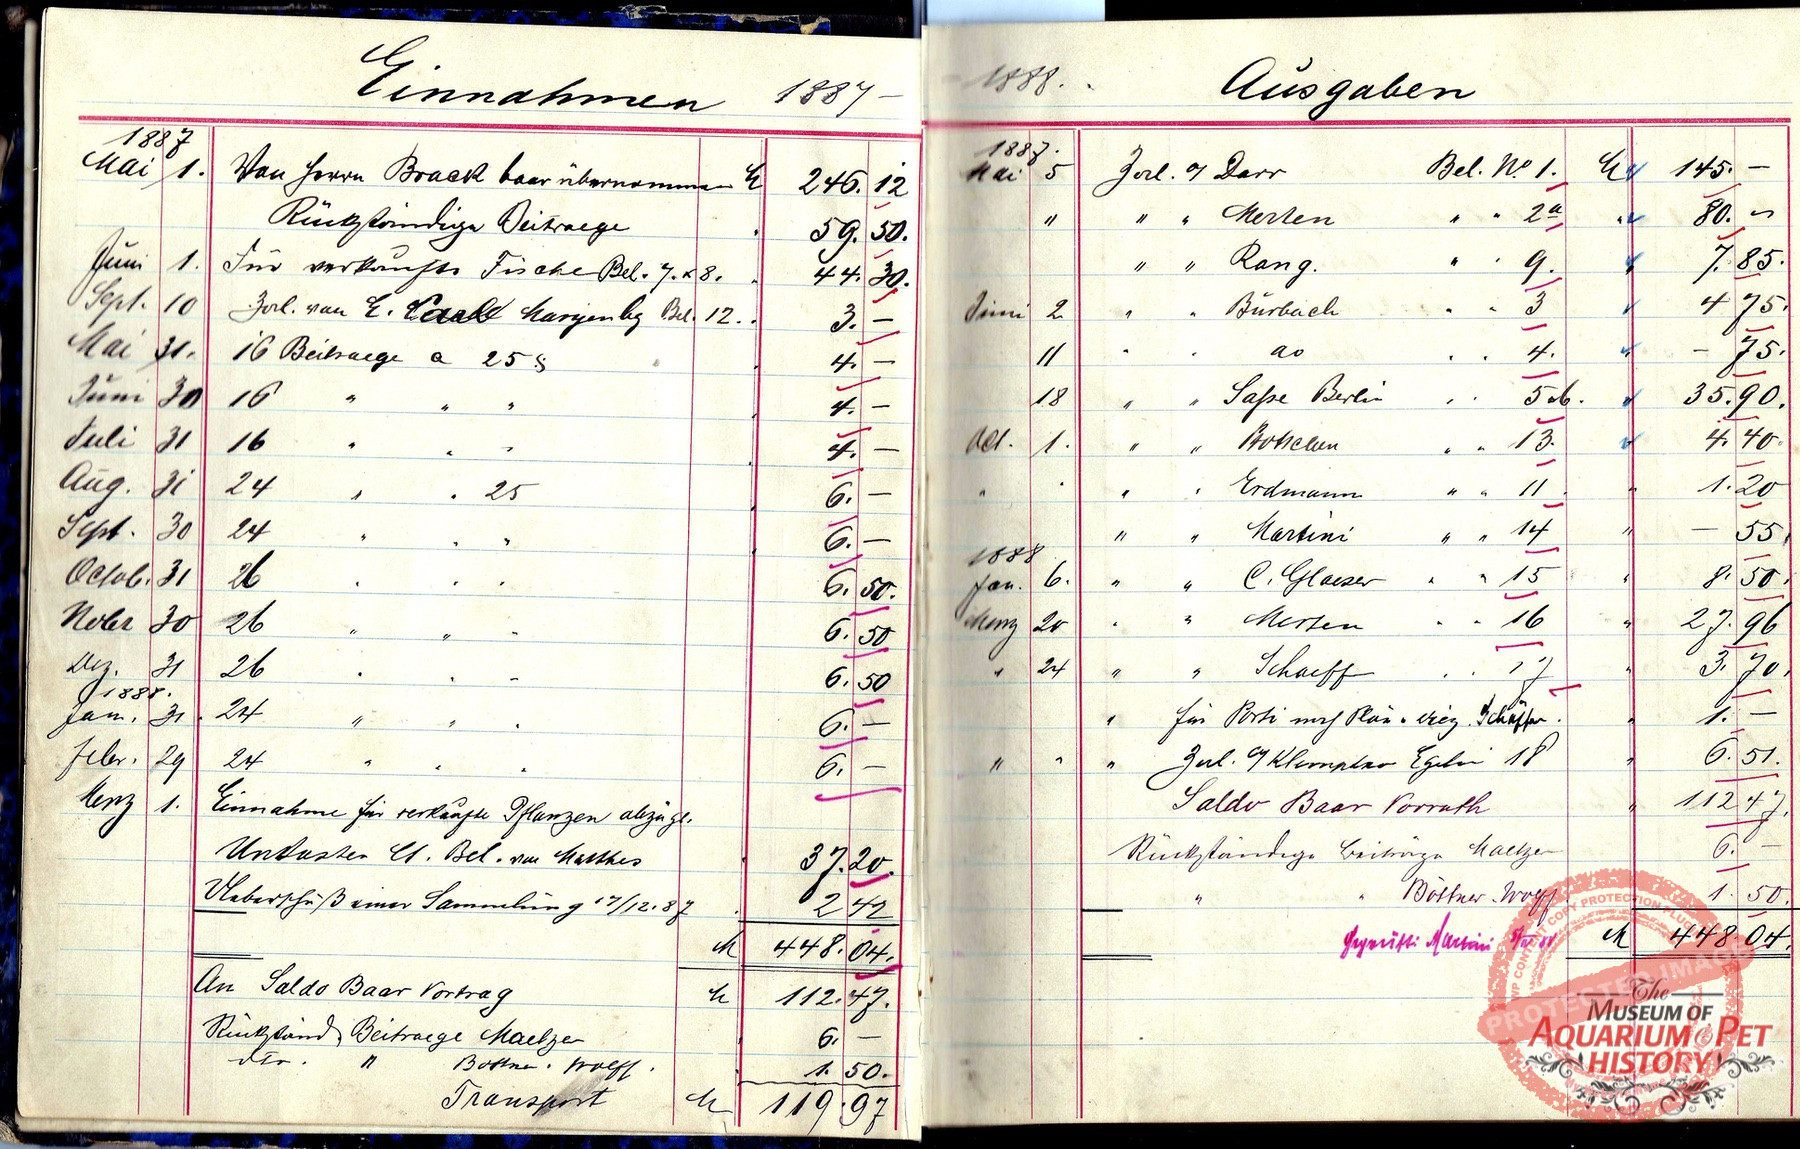 Einnahmen 1887 –
1887
Mai 1. Von Herrn Braack baar übernommen M 246. 12
Rückständige Beitraege " 59. 50.
Juni 1. Für verkaufte Fische Bel. 7. & 8. " 44. 30.
Sept. 10 Zal. von E. Bel. 12. " 3. –
Mai 31. 16 Beitraege a 25 4. –
Juni 30 16 " " " 4. –
Juli 31 16 " " " 4. –
Aug. 31 24 " " 25 6. –
Sept. 30 24 " " " 6. –
Octob. 31 26 " " " 6. 50.
Nobr 30 26 " " " 6. 50
Dez. 31 26 " " " 6. 50
1888.
Jan. 31. 24 " " " 6. –
Febr. 29 24 " " " 6. –
Merz 1. Einnahme für verkaufte Pflanzen abzügl.
Unkosten Bel. von Matthes " 37. 20.
Ueberschuß einer Sammlung 17/12. 87 " 2 42
M 448. 04.
An Saldo Baar Vortrag M 112. 47.
Rückständ. Beitraege Maetzer 6. –
dto. " Böttner. Wolff. 1. 50.
Transport M 119. 97
1888. Ausgaben
1887.
Mai 5 Zal. a/ Darr Bel. No 1. M 145. –
" " " Merten " " 2a " 80. –
" " Rang. " " 9. " 7. 85.
Juni 2 " " Burbach " " 3 " 4 75.
11 " " do " " 4. " – 75.
18 " " Sasse Berlin " " 5 & 6. " 35. 90.
Oct. 1. " " " " 13. " 4. 40.
" " " " Erdmann " " 11 " 1. 20
" " Martini " " 14 " – 55
1888
Jan. 6. " " C. Glaeser " " 15 " 8. 50.
Merz 20 " " Merten " " 16 " 27. 96
" 24 " " Schaeff " " 17 " 3. 70.
" für Porti Schäffer. " 1. –
" " " Zal. a/ Klempner 18 " 6. 51.
Saldo Baar Vorrath " 112 47.
Rückständige Beiträge Maetzer 6. –
" " Böttner. Wolff 1. 50.
Geprüft: Martini M 448 04.
PROTECTED IMAGE
COPY PROTECTION PLUGIN
The
MUSEUM OF
AQUARIUM & PET
HISTORY